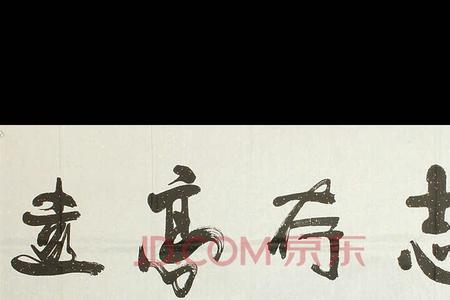 志有高遠
JD.COM京东